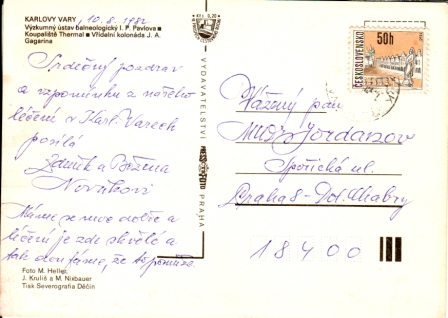 KARLOVY VARY 10.8.1982
Výzkumný ústav balneologický I. P. Pavlova ■
Koupaliště Thermal ■ Vřídelní kolonáda J. A.
Gagarina
Srdečný pozdrav
a vzpomínku z našeho
léčení v Karl. Varech
posílá
Zdeněk a Božena
Novákovi
Máme se moc dobře a
léčení je zde skvělé a
tak doufáme, že to pomůže.
Foto M. Heller,
J. Kruliš a M. Nixbauer
Tisk Severografia Děčín
Kčs 0,20
VYDAVATELSTVÍ
PRAHA
50h
ČESKOSLOVENSKO
Vážený pan
MUDr Jordanov
Spořická ul.
Praha 8 - Dol. Chabry
18400